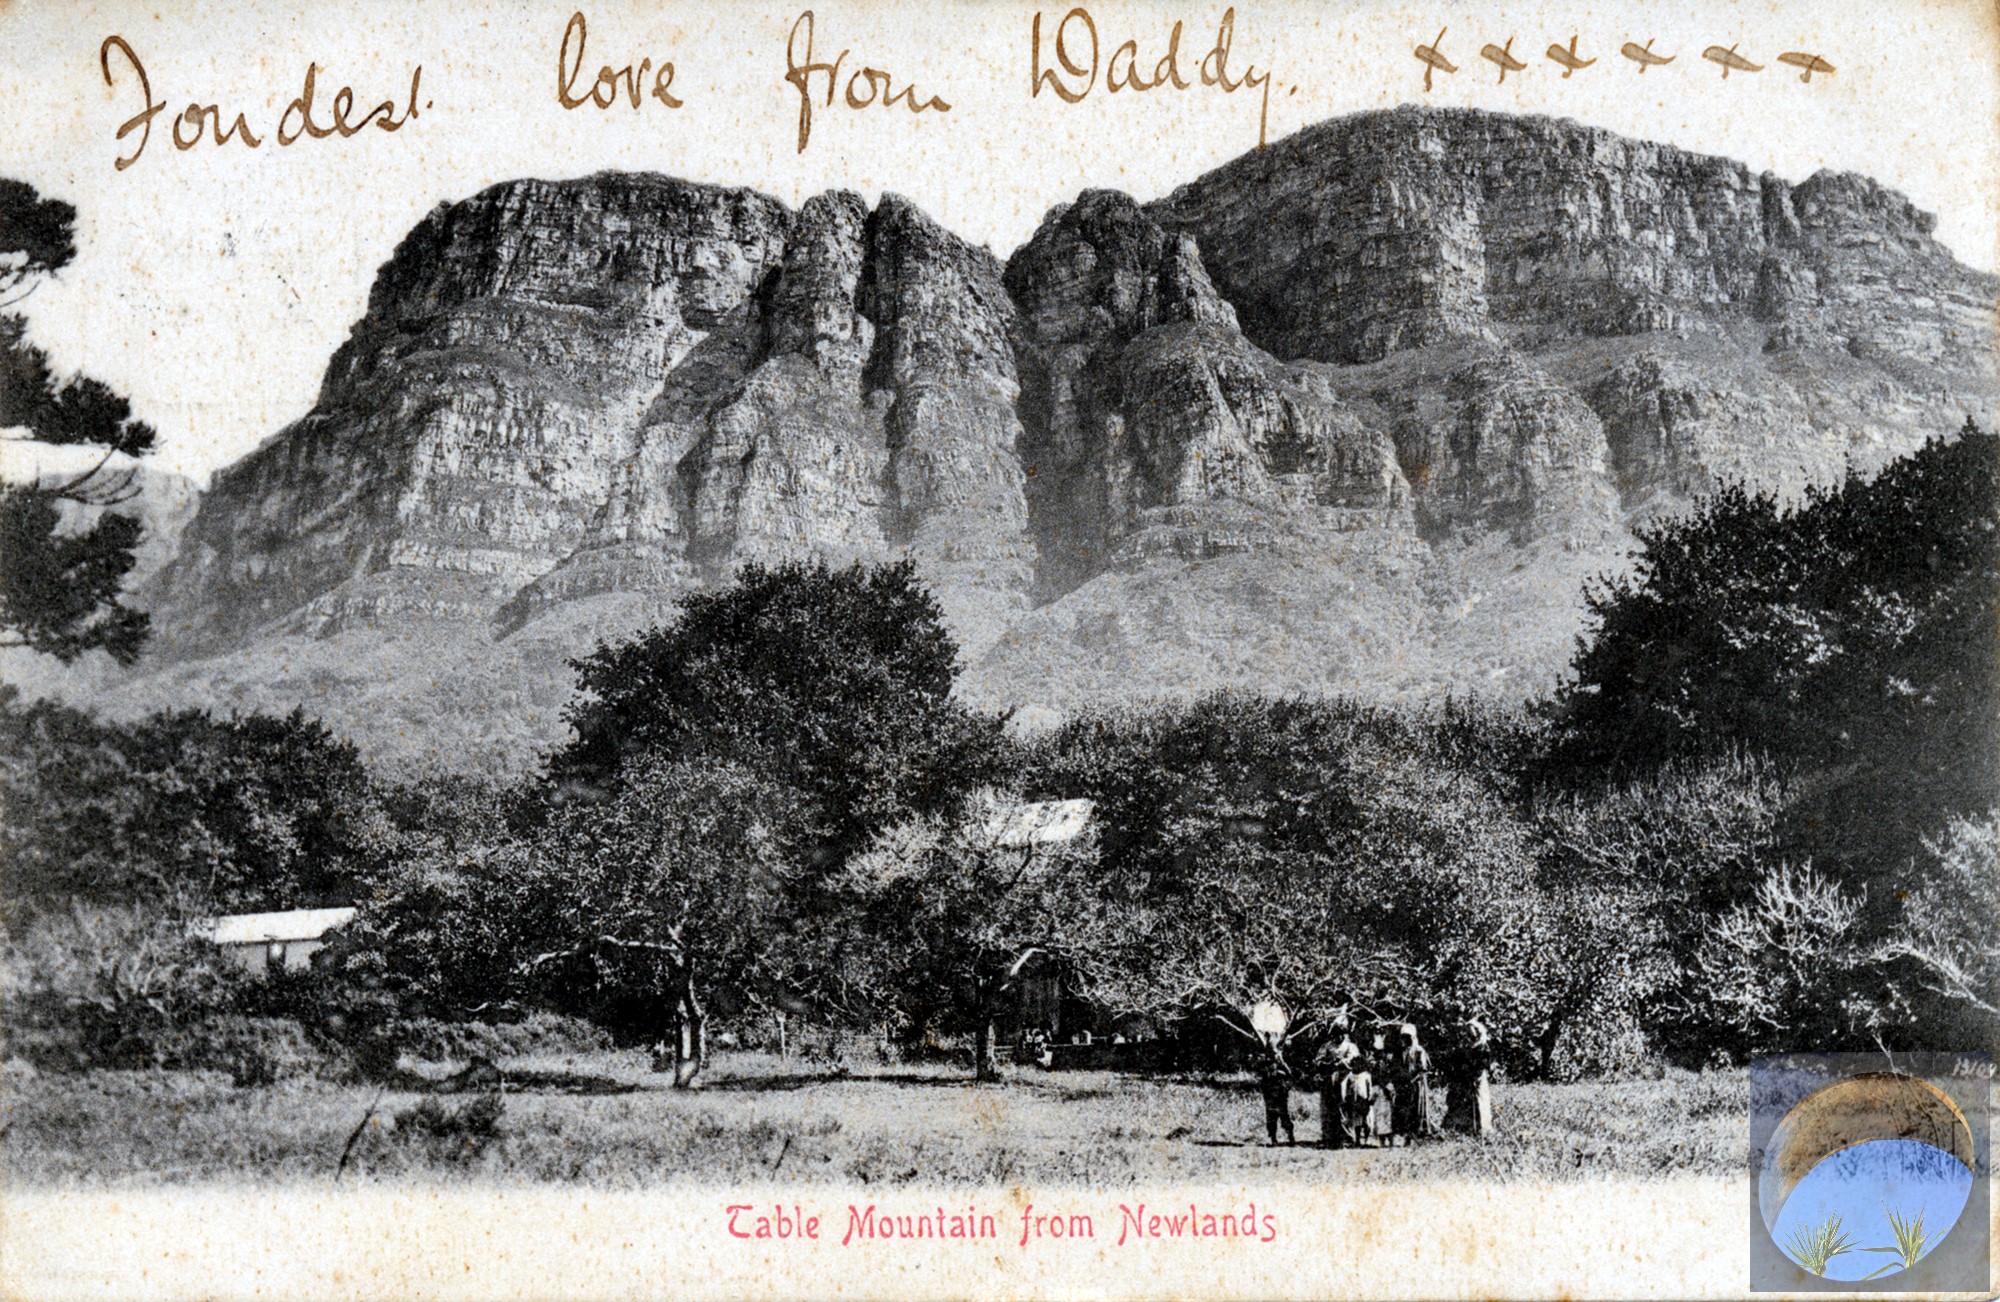 Fondest love from Daddy. x x x x x x
Table Mountain from Newlands